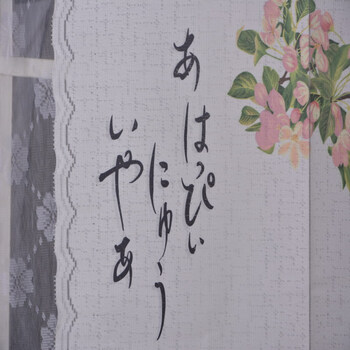 あ はっぴぃ
にゅう
いやあ